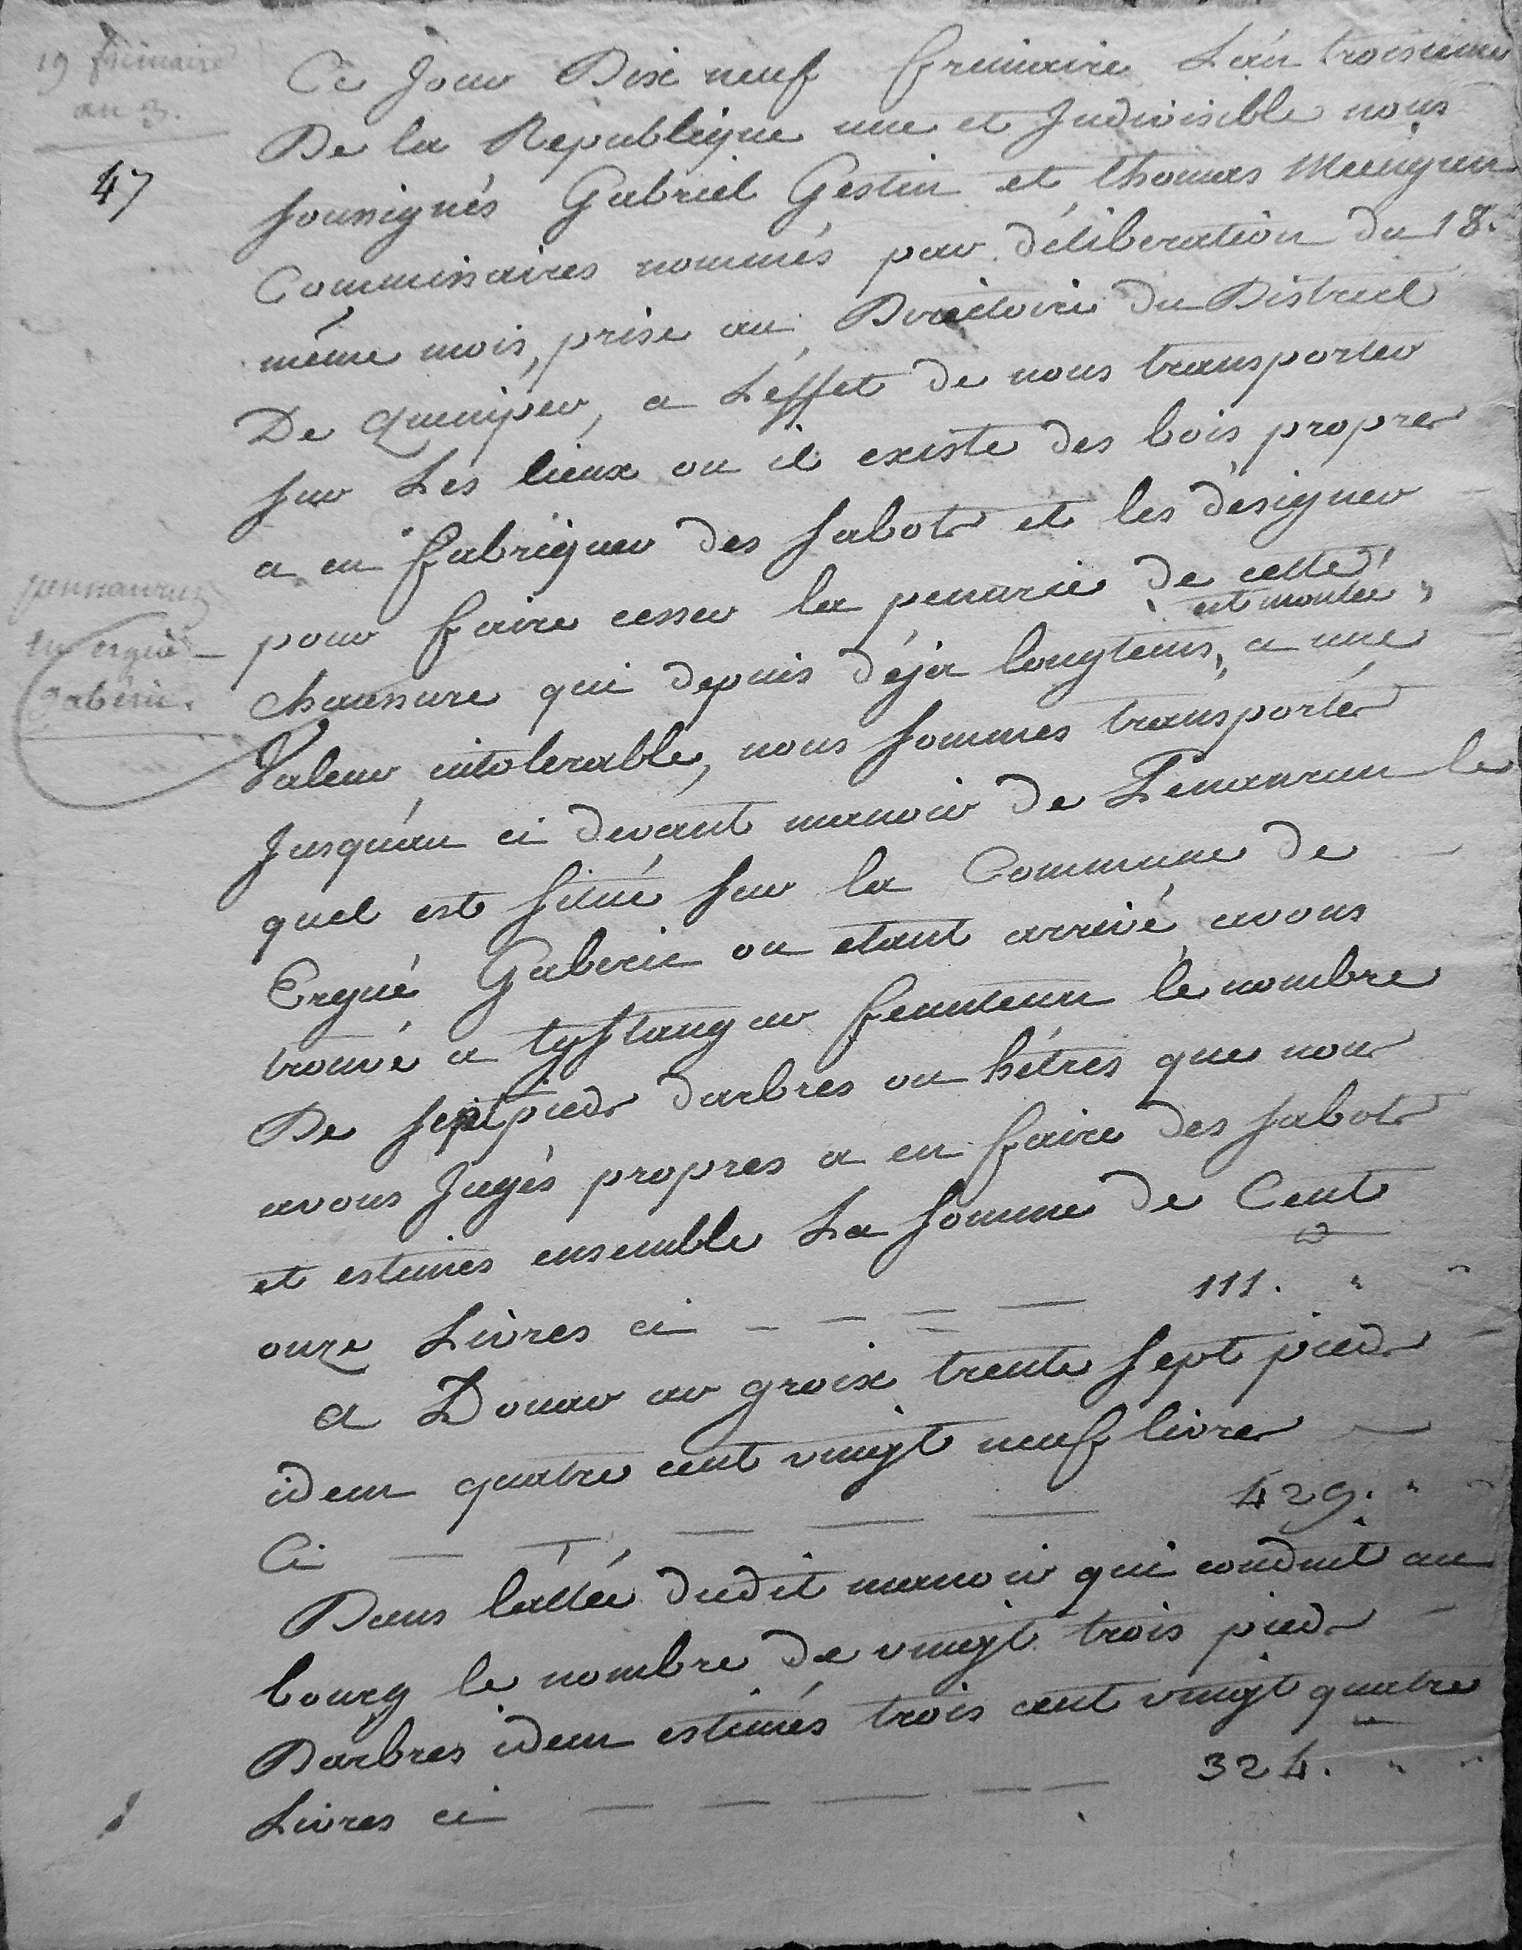 19 frimaire
an 3.
47
Ce Jour Dix neuf frimaire L'an troisieme
De la Republique une et Jndivisible nous
soussignés Gabriel Gestin et thomas
Commissaires nommés par déliberation du 18.
même mois, prise au Directoire du District
De Quimper, a L'effet de nous transporter
sur Les lieux ou il existe des bois propres
a en fabriquer des sabots et les désigner
pour faire cesser la penurie de cette
est montée
chaussure qui depuis déja longtems, a une
Valeur intolerable, nous sommes transportés
Jusqu'au ci devant manoir de Penanrun le
quel est situé sur la Commune de
Ergué Gaberic ou etant arrivé avons
trouvé a tystang ar feunteun le nombre
De sept pieds d'arbres ou hêtres que nous
avons Jugés propres a en faire des sabots
et estimés ensemble La somme de Cent
onze Livres ci 111. "
a Douar ar groix trente sept pieds
idem quatre cent vingt neuf livres
Ci 429. "
Dans l'allée dudit manoir qui conduit au
bourg le nombre de vingt trois pieds
Darbres idem estimés trois cent vingt quatre
Livres ci 324. "
pennanrun
en ergué
gabéric.